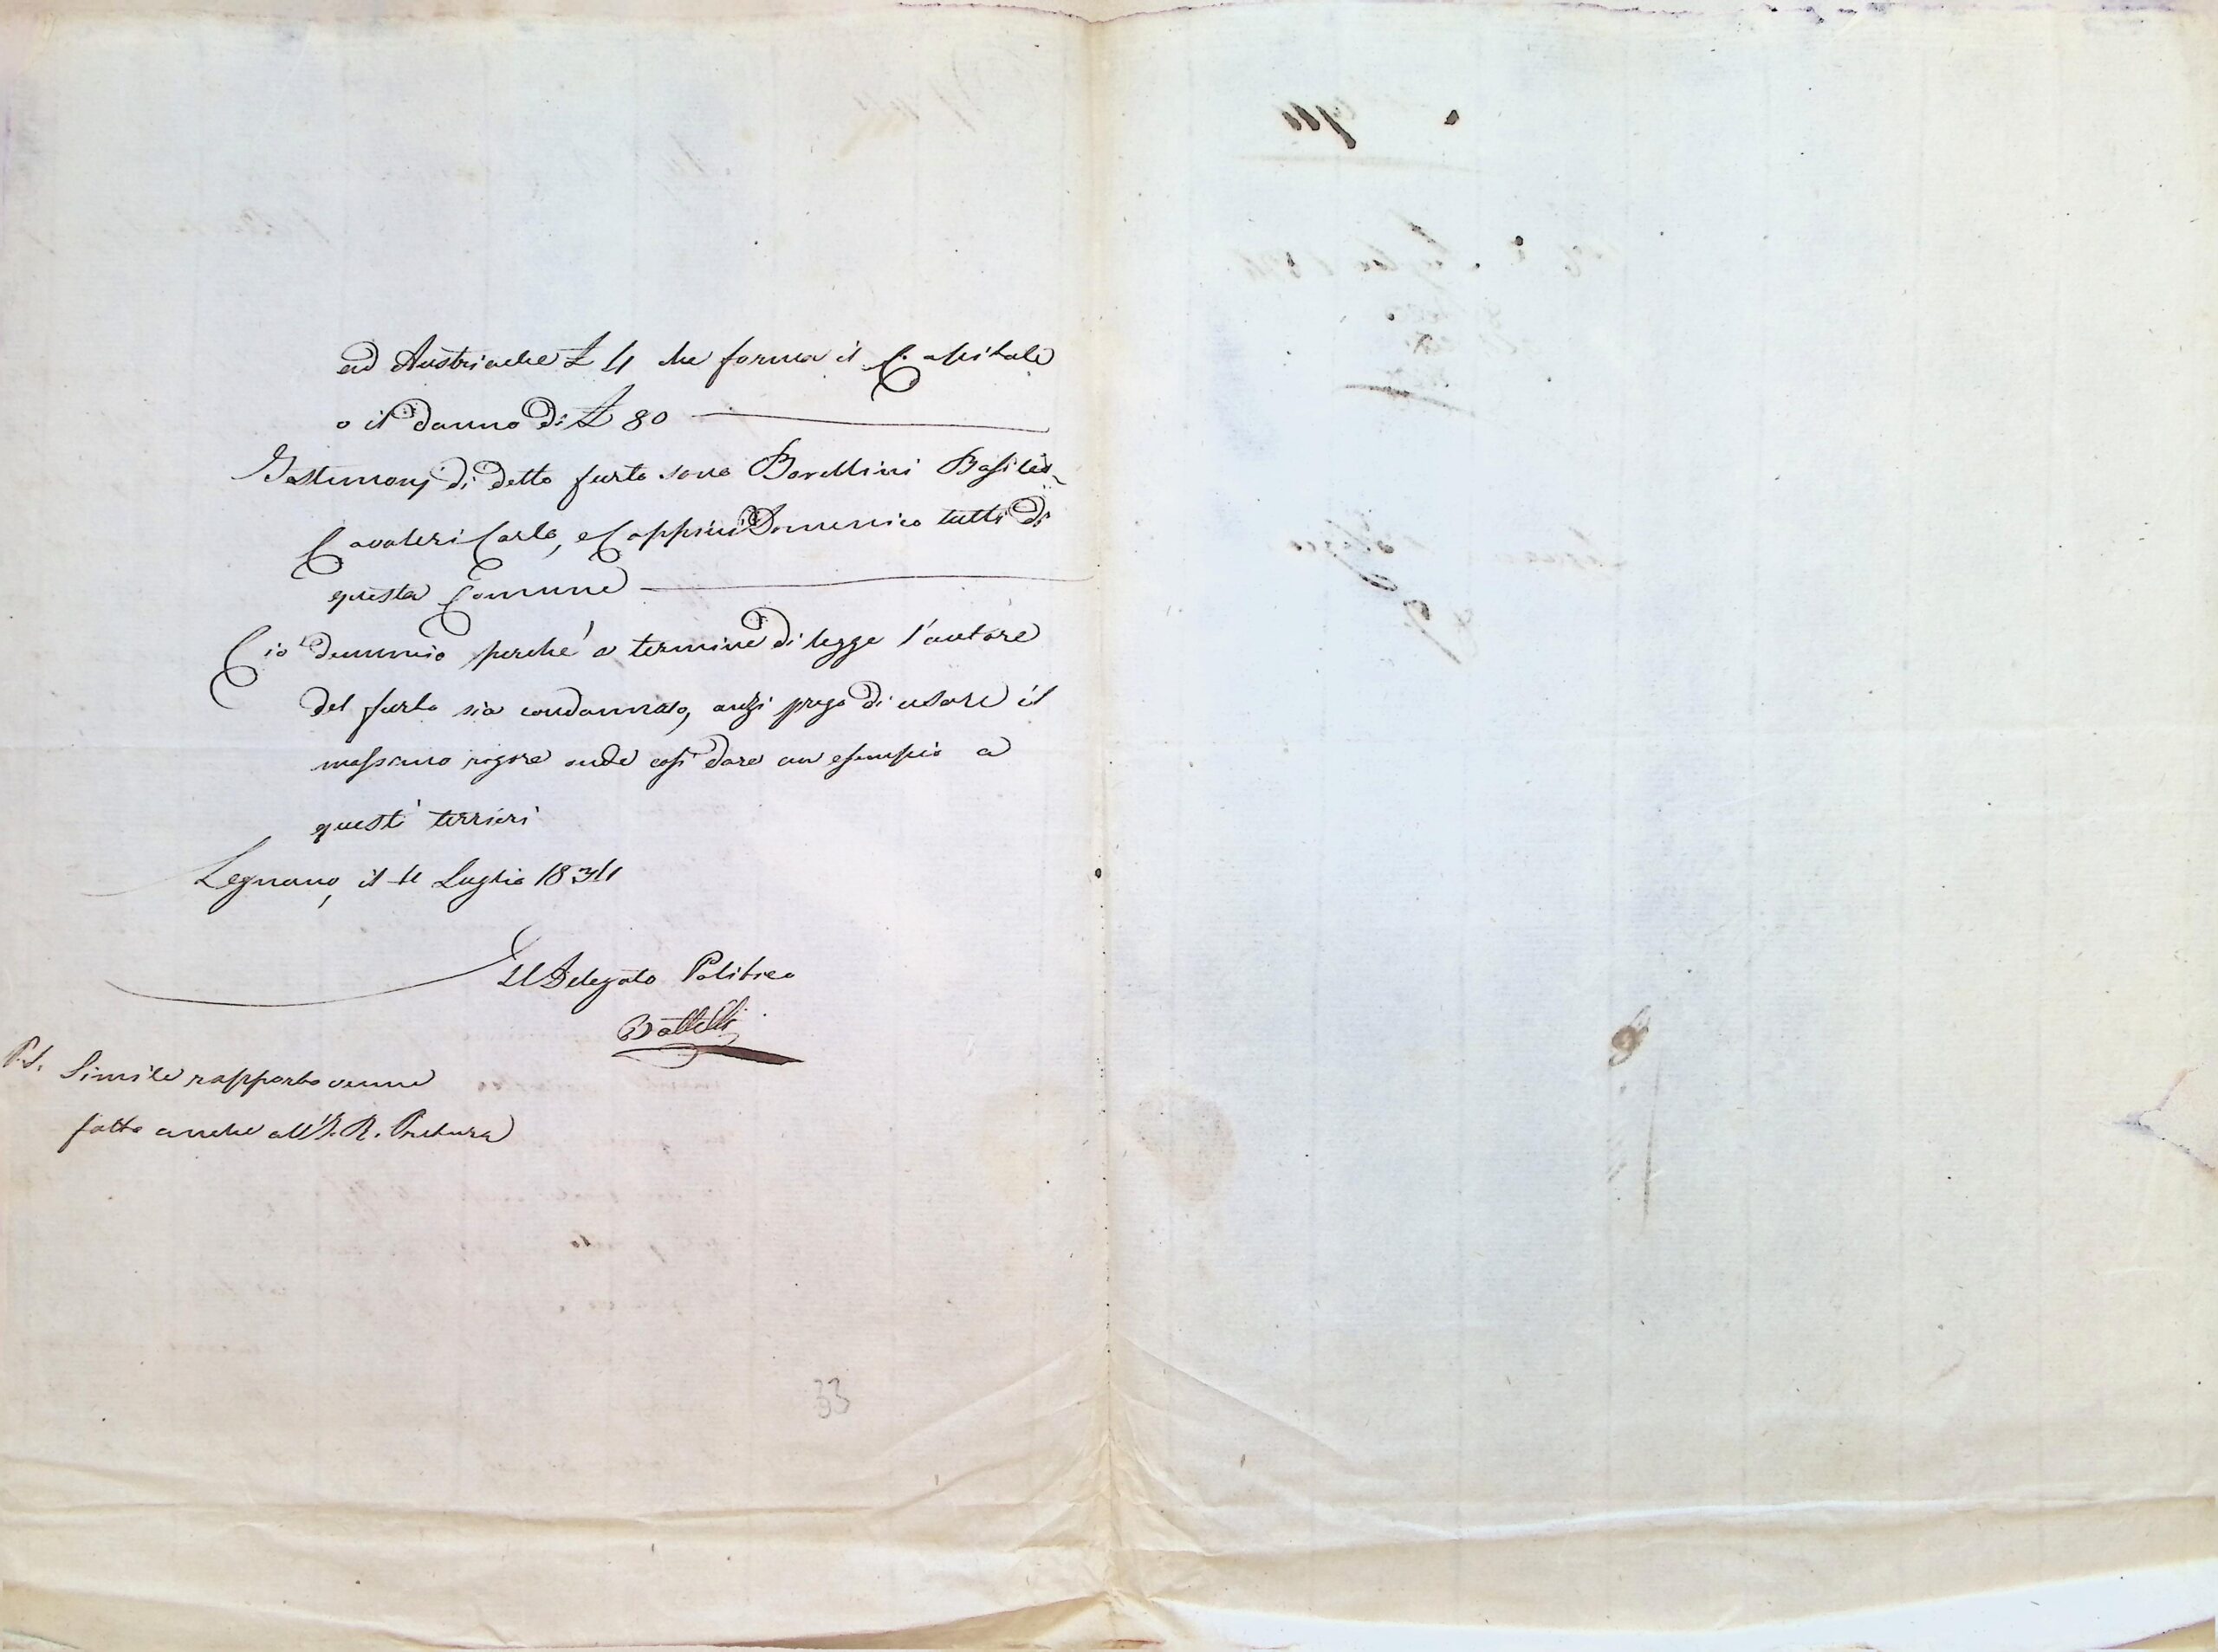 ad Austriache £ 4 che forma il Capitale
o il danno di £ 80
Testimonj di detto furto sono Borellini Basilio
Cavaleri Carlo, e Cappini Domenico tutti di
questa Comune
Ciò denunzio perche' a termine di legge l'autore
del furto sia condannato, anzi prego di usare il
massimo rigore onde così dare un esempio a
questi terrieri
Legnano, il 4 Luglio 1834
Il Delegato Politico
P.S. Simile rapporto venne
fatto anche all'I. R. Pretura
33